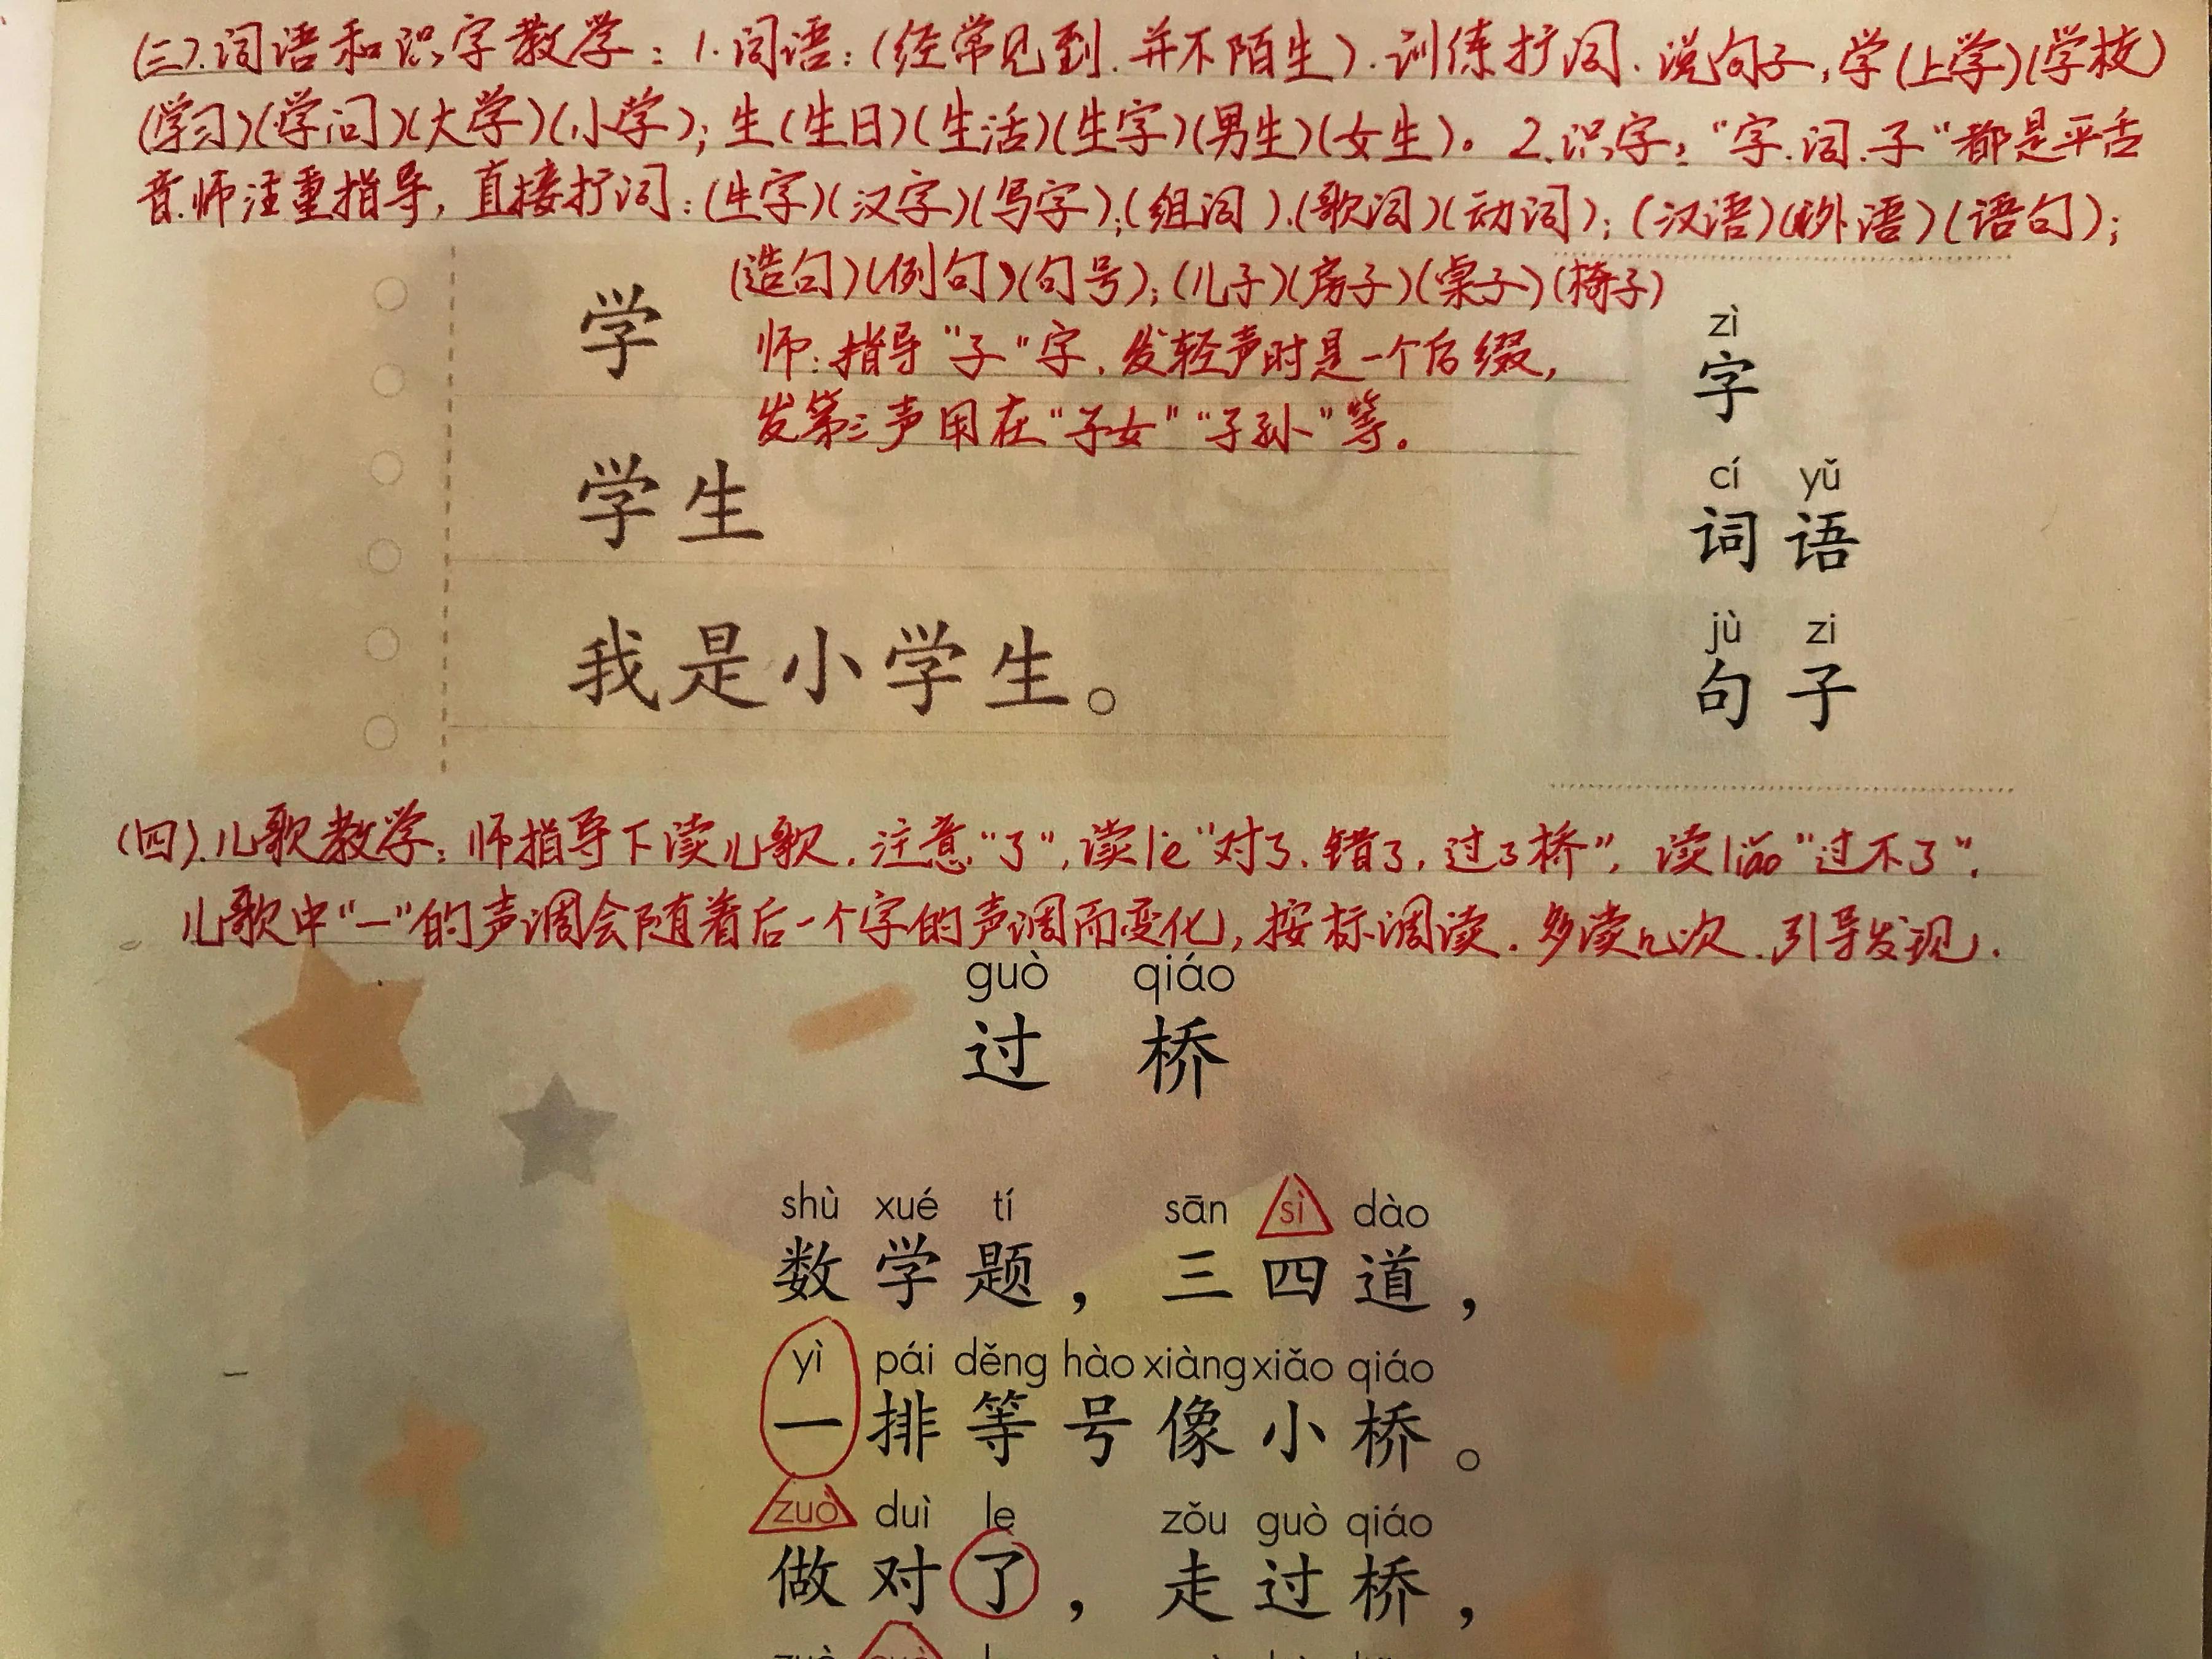 (三).词语和识字教学：1.词语：(经常见到.并不陌生).训练扩词.说句子,学(上学)(学校)
(学习)(学问)(大学)(小学)；生(生日)(生活)(生字)(男生)(女生)。2.识字："字.词.子"都是平舌
音.师注重指导,直接扩词：(生字)(汉字)(写字);(组词).(歌词)(动词);(汉语)(外语)(语句);
(造句)(例句)(句号);(儿子)(房子)(桌子)(椅子)
师:指导"子"字.发轻声时是一个后缀,
发第三声用在"子女""子孙"等。
学
学生
我是小学生。
zì
字
cí yǔ
词语
jù zi
句子
(四).儿歌教学：师指导下读儿歌.注意"了",读le"对了.错了,过了桥",读liǎo"过不了".
儿歌中"一"的声调会随着后一个字的声调而变化,按标调读.多读几次.引导发现.
guò qiáo
过 桥
shù xué tí sān sì dào
数学题，三四道，
yì pái děng hào xiàng xiǎo qiáo
一排等号像小桥。
zuò duì le zǒu guò qiáo
做对了，走过桥，